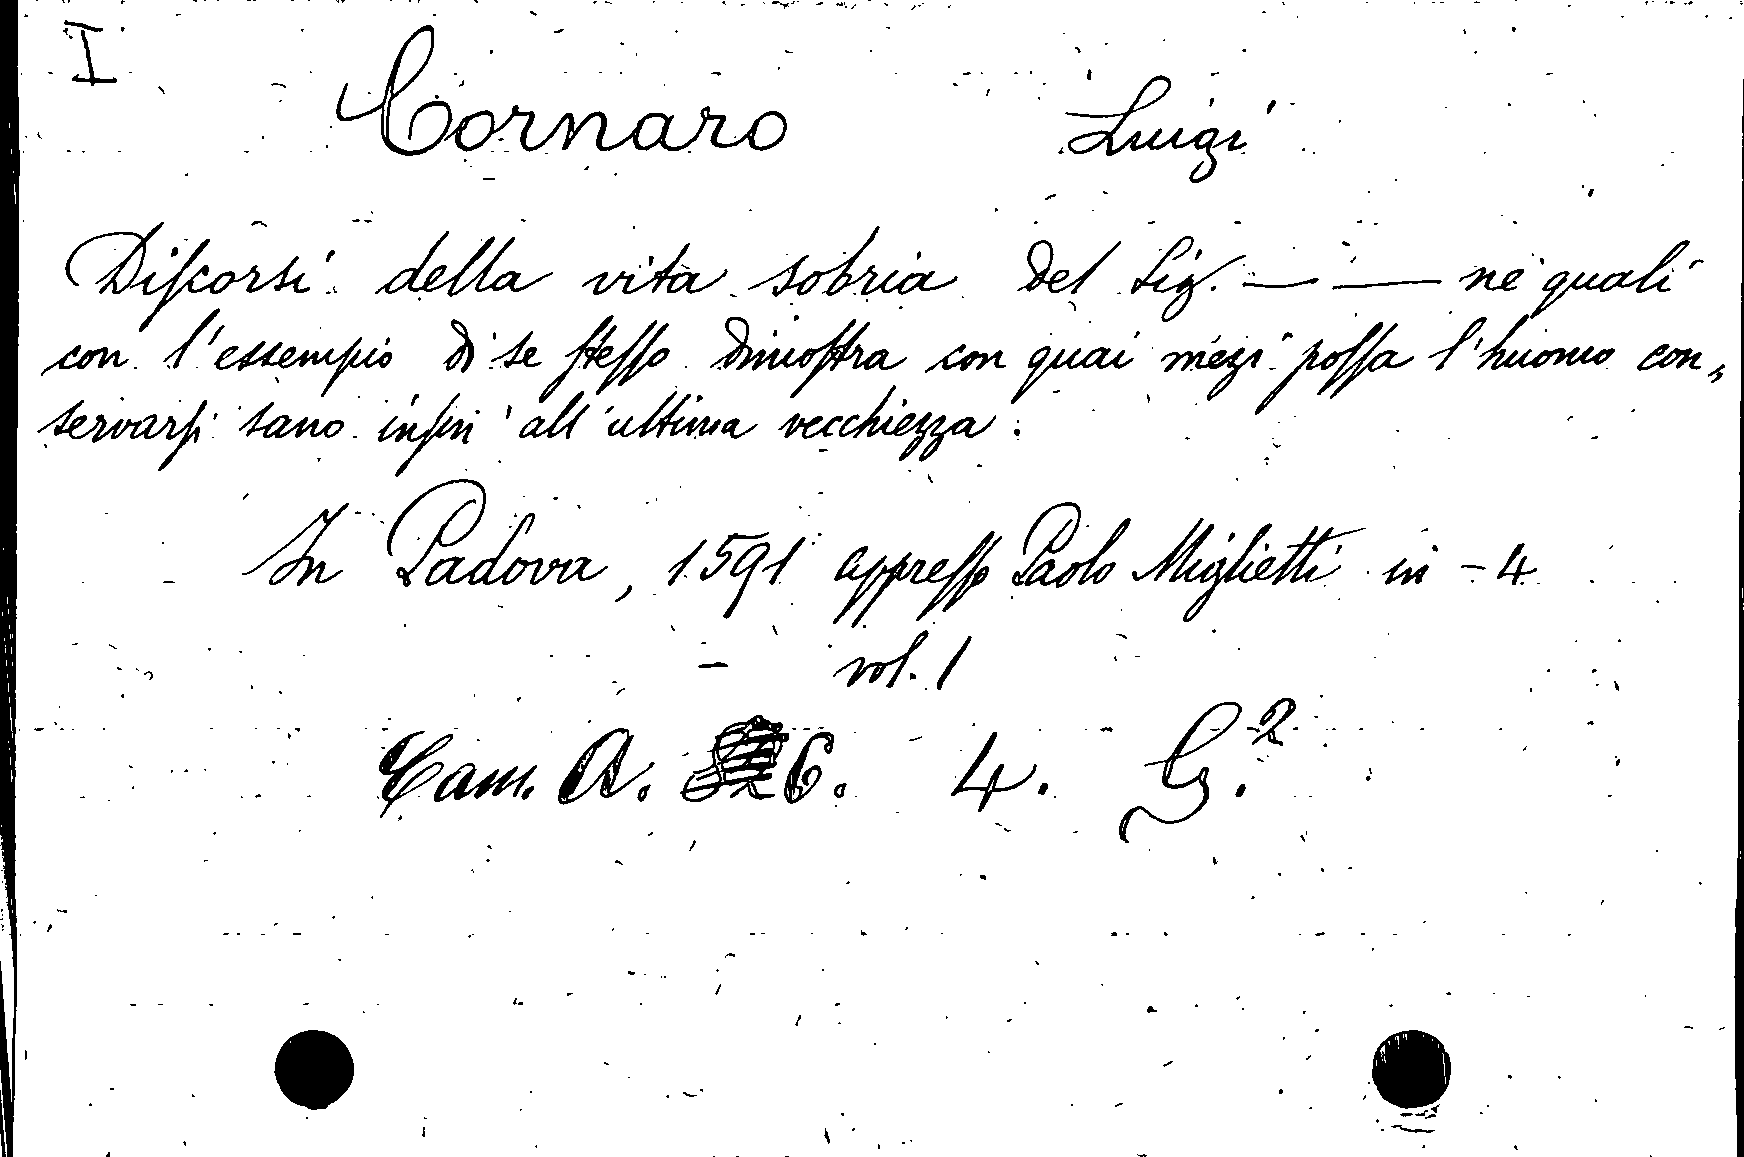 I
Cornaro Luigi
Diſcorsi della vita sobria del Sig. — — ne' quali
con l'essempio di se ſteſſo dimoſtra con quai mezi poſſa l'huomo con„
servarſi sano inſin' all'ultima vecchiezza.
In Padova, 1591 appreſſo Paolo Miglietti in - 4
vol. 1
Cam. A. 6. 4. G.²